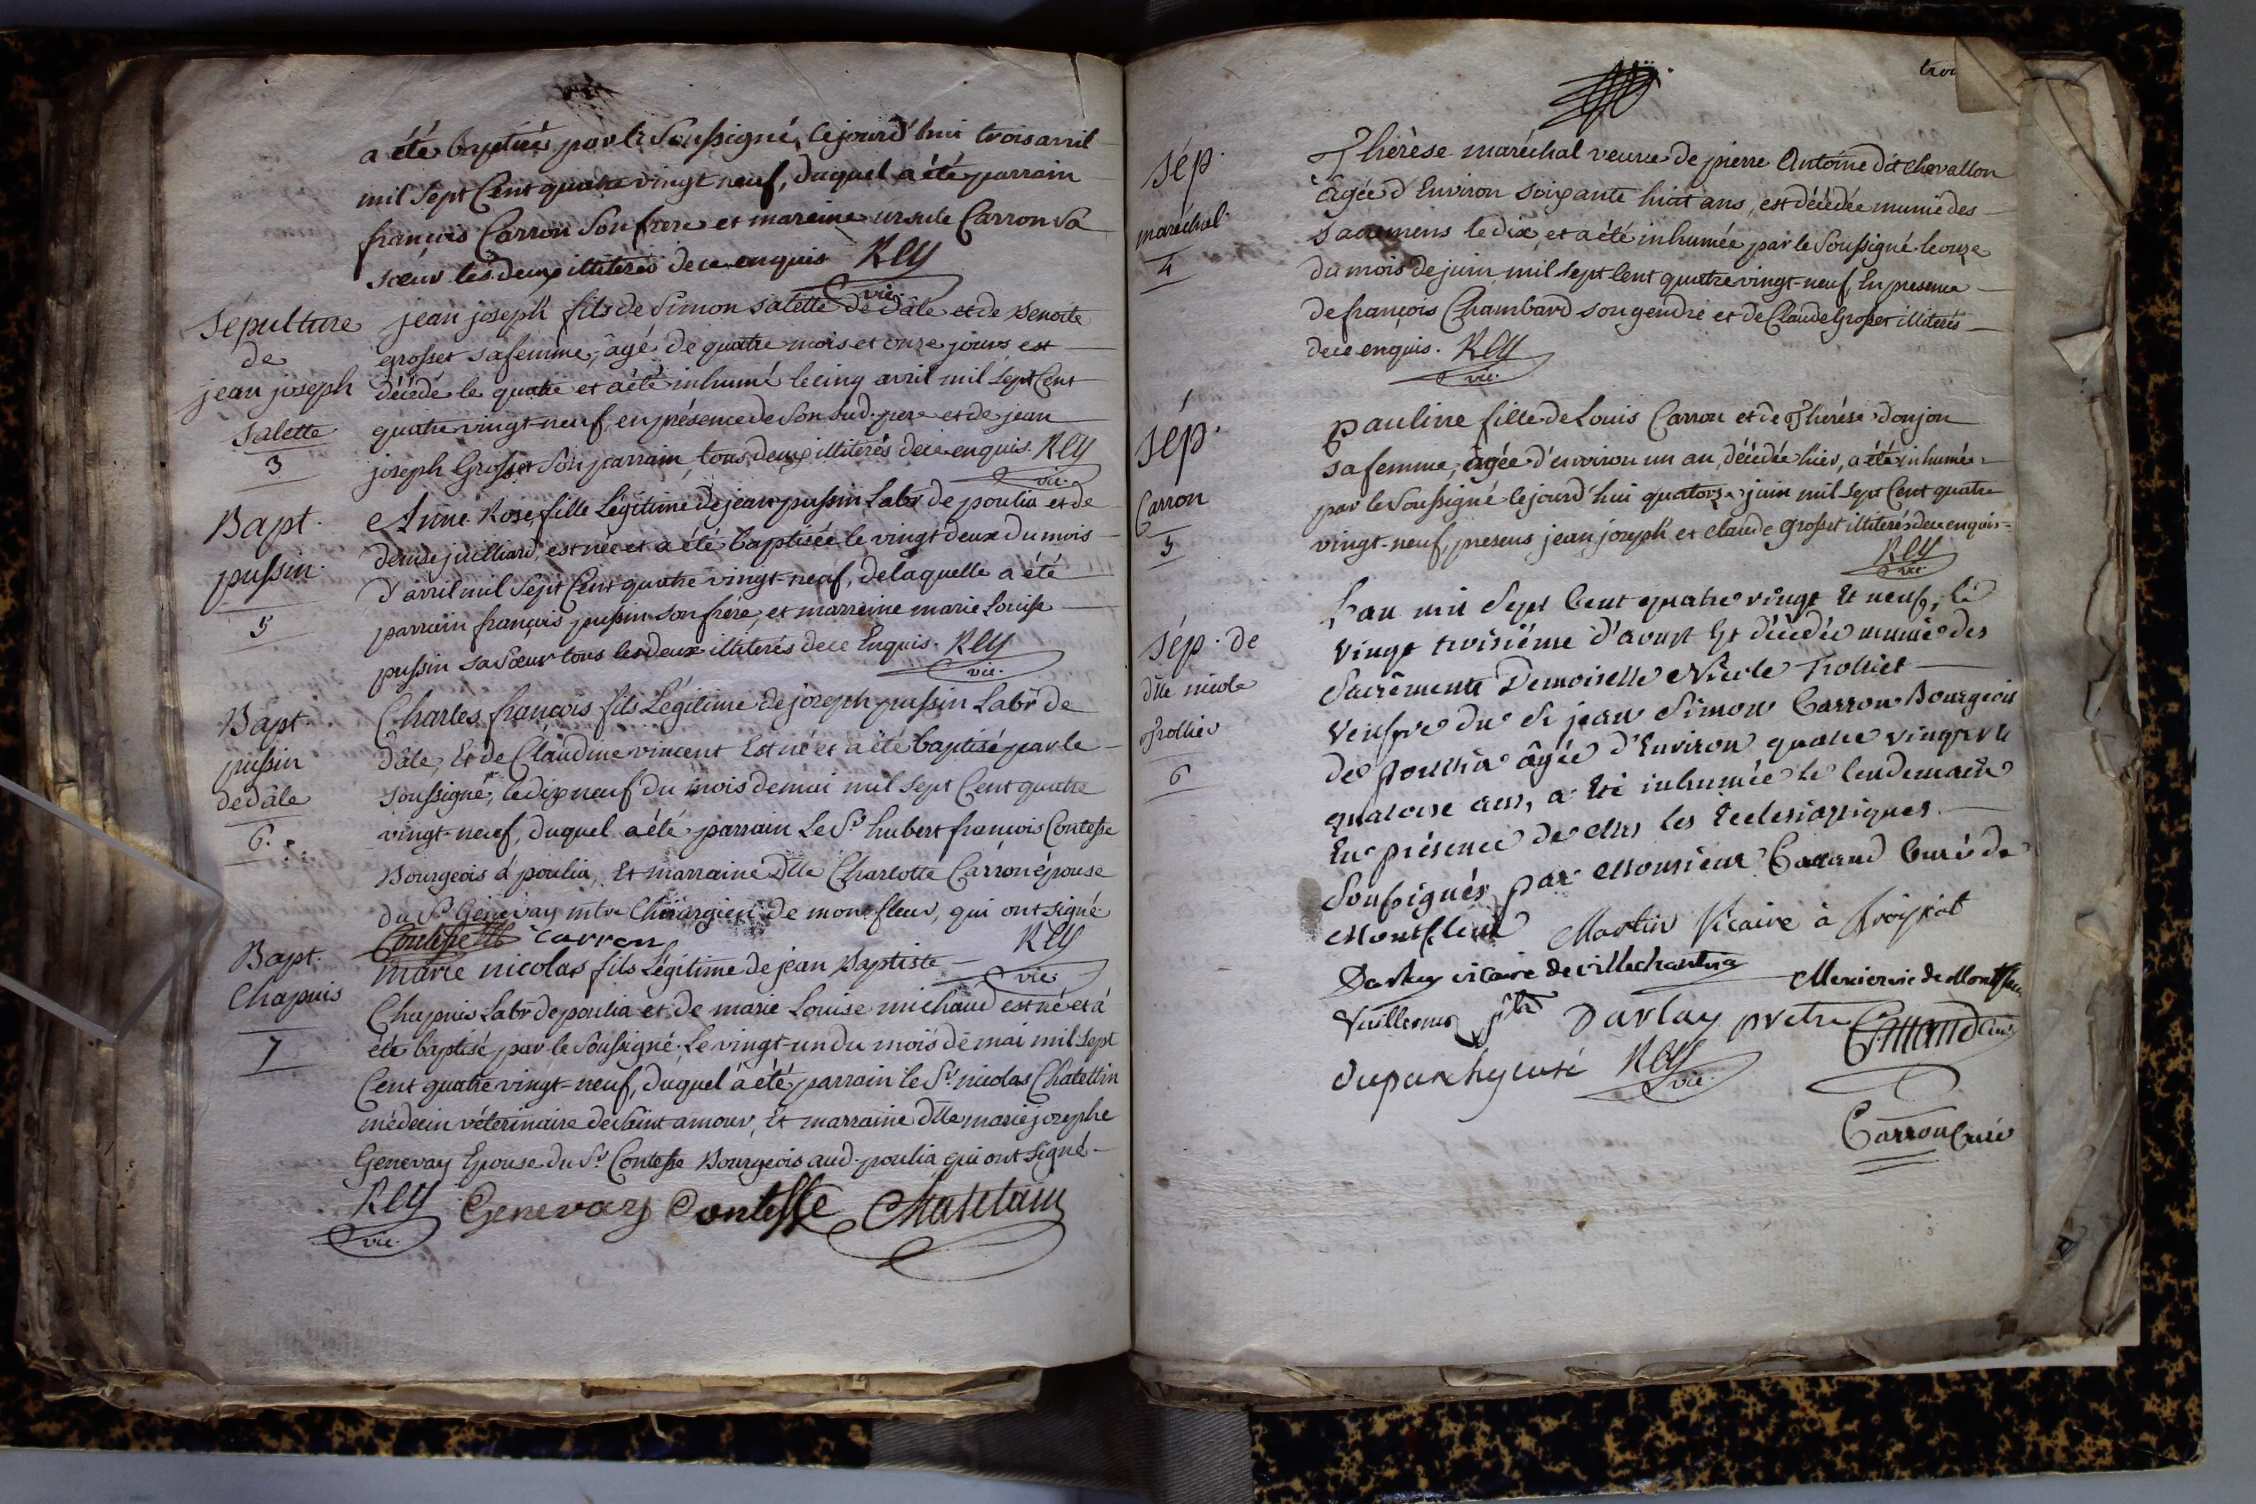 a été baptisé par le Soussigné, cejourd'hui trois avril
mil Sept Cent quatre vingt neuf, duquel a été parrain
françois Carron Son frere et mareine ursule Carron Sa
sœur les deux illiterés de ce enquis Rey
vic.
Sépulture
de
jean joseph
Salette
3
jean joseph fils de Simon Salette de Dâle et de Benoite
grosset sa femme, âgé de quatre mois et onze jours est
décédé le quatre et a été inhumé le cinq avril mil Sept Cent
quatre vingt-neuf, en présence de Son sud. pere et de jean
joseph Grosset Son parrain, tous deux illiterés de ce enquis. Rey
vic.
Bapt.
pussin.
5
Anne Rose, fille Légitime de jean pussin Labr de poulia et de
denise juilliard, est née et a été baptisée le vingt deux du mois
d'avril mil Sept Cent quatre vingt-neuf, de laquelle a été
parrain françois pussin son frére, et marreine marie Louise
pussin sa Sœur tous les deux illiterés de ce Enquis. Rey
vic.
Bapt.
pussin
de dâle
6.
Charles françois fils Légitime de joseph pussin Labr de
dâle, Et de Claudine vincent Est né et a été baptisé par le
Soussigné, le dix neuf du mois de mai mil Sept Cent quatre
vingt-neuf, duquel a été parrain Le Sr hubert françois Contesse
Bourgeois à poulia, Et marraine Dlle Charlotte Carron épouse
du Sr Genevay mtre Chirurgien de montfleur, qui ont signé
Contesse carron Rey
vic.
Bapt.
Chapuis
7
marie nicolas fils Légitime de jean Baptiste
Chapuis Labr de poulia et de marie Louise michaud est né et a
été baptisé par le Soussigné. Le vingt-un du mois de mai mil Sept
Cent quatre vingt-neuf, duquel a été parrain le Sr nicolas Chatettin
médecin véterinaire de Saint amour, Et marraine dlle marie josephe
Genevay Epouse du Sr Contesse Bourgeois aud. poulia qui ont signé
Rey Genevay Contesse Chatelain
vic.
trois
Sép.
maréchal
4
Thérèse maréchal veuve de pierre Antoine dit Chevallon
âgée d'Environ soixante huit ans, est décédée munie des
Sacremens le dix, et a été inhumée par le Soussigné le onze
du mois de juin mil Sept Cent quatre vingt-neuf, En presence
de françois Chambard son gendre et de Claude Grosset illiterés
de ce enquis. Rey
vic.
Sép.
Carron
5
pauline fille de Louis Carron et de Thérése donjon
sa femme, âgée d'environ un an, décédée hier, a été inhumée
par le Soussigné cejourd'hui quatorze juin mil Sept Cent quatre
vingt-neuf, presens jean joseph et claude grosset illiterés de ce enquis
Rey
vic.
Sép. de
dlle nicole
Trollier
6
L'an mil Sept Cent quatre vingt Et neuf, le
vingt troisiéme d'avust Est décédée munie des
Sacréments Demoiselle Nicole Trolliet
veufve du Sr jean Simon Carron Bourgeois
de poullia âgée d'Environ quatre vingt Et
quatorse ans, a Eté inhumée le lendemain
En présence de Mrs les Ecclesiastiques
Soussignés par Monsieur Camand Curé de
Montfleur Martin Vicaire à
Darlay vicaire de villechantria Mercier vic de Montfleur
Vuillermoz ptre Darlay prètre Camand Curé
duparchy curé Rey
vic.
Carron Curé